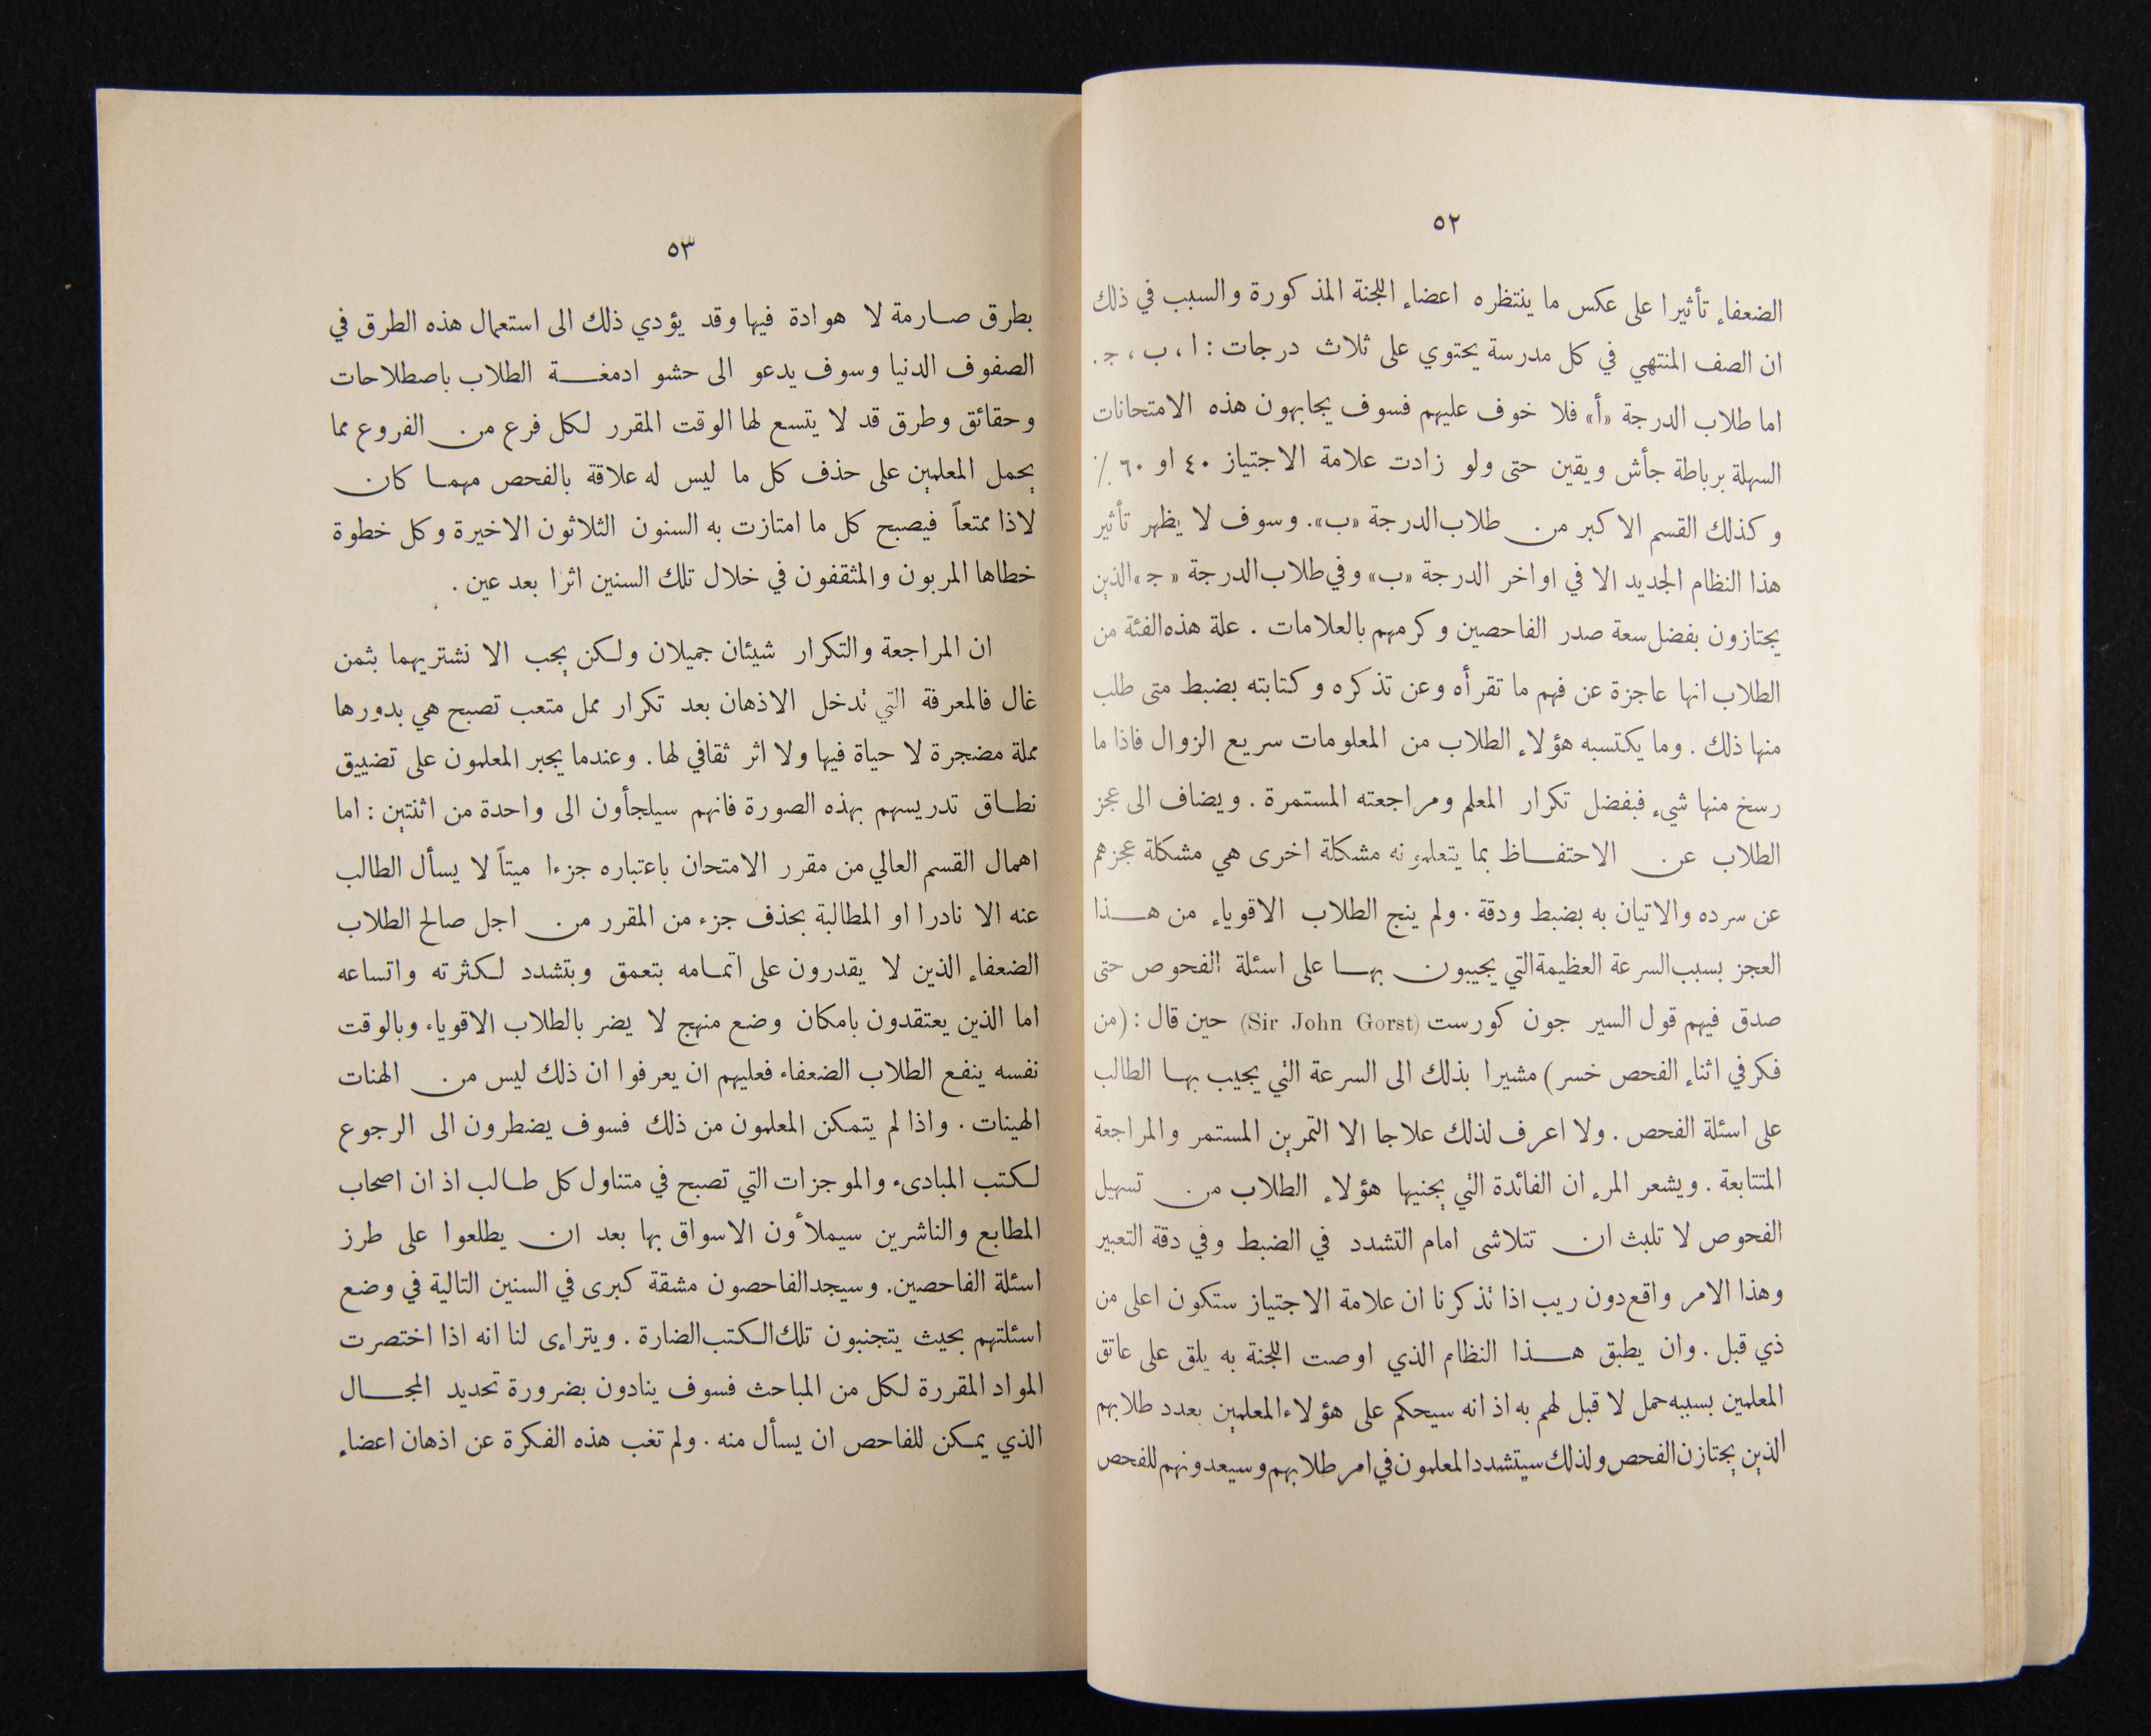 ٥٢
الضعفاء تأثيرا على عكس ما ينتظره اعضاء اللجنة المذكورة والسبب في ذلك
ان الصف المنتهي في كل مدرسة يحتوي على ثلاث درجات : ا ، ب ، ج .
اما طلاب الدرجة «أ» فلا خوف عليهم فسوف يجابهون هذه الامتحانات
السهلة برباطة جأش ويقين حتى ولو زادت علامة الاجتياز ٤٠ او ٦٠ ٪
وكذلك القسم الاكبر من طلاب الدرجة «ب». وسوف لا يظهر تأثير
هذا النظام الجديد الا في اواخر الدرجة «ب» وفي طلاب الدرجة « ج » الذين
يجتازون بفضل سعة صدر الفاحصين وكرمهم بالعلامات . علة هذه الفئة من
الطلاب انها عاجزة عن فهم ما تقرأه وعن تذكره وكتابته بضبط متى طلب
منها ذلك . وما يكتسبه هؤلاء الطلاب من المعلومات سريع الزوال فاذا ما
رسخ منها شيء فبفضل تكرار المعلم ومراجعته المستمرة . ويضاف الى عجز
الطلاب عن الاحتفاظ بما يتعلمونه مشكلة اخرى هي مشكلة عجزهم
عن سرده والاتيان به بضبط ودقة . ولم ينج الطلاب الاقوياء من هذا
العجز بسبب السرعة العظيمة التي يجيبون بها على اسئلة الفحوص حتى
صدق فيهم قول السير جون كورست (Sir John Gorst) حين قال : (من
فكر في اثناء الفحص خسر) مشيرا بذلك الى السرعة التي يجيب بها الطالب
على اسئلة الفحص . ولا اعرف لذلك علاجا الا التمرين المستمر والمراجعة
المتتابعة . ويشعر المرء ان الفائدة التي يجنيها هؤلاء الطلاب من تسهيل
الفحوص لا تلبث ان تتلاشى امام التشدد في الضبط وفي دقة التعبير
وهذا الامر واقع دون ريب اذا تذكرنا ان علامة الاجتياز ستكون اعلى من
ذي قبل . وان يطبق هذا النظام الذي اوصت اللجنة به يلق على عاتق
المعلمين بسببه حمل لا قبل لهم به اذ انه سيحكم على هؤلاء المعلمين بعدد طلابهم
الذين يجتازن الفحص ولذلك سيتشدد المعلمون في امر طلابهم وسيعدونهم للفحص
٥٣
بطرق صارمة لا هوادة فيها وقد يؤدي ذلك الى استعمال هذه الطرق في
الصفوف الدنيا وسوف يدعو الى حشو ادمغة الطلاب باصطلاحات
وحقائق وطرق قد لا يتسع لها الوقت المقرر لكل فرع من الفروع مما
يحمل المعلمين على حذف كل ما ليس له علاقة بالفحص مهما كان
لاذا ممتعاً فيصبح كل ما امتازت به السنون الثلاثون الاخيرة وكل خطوة
خطاها المربون والمثقفون في خلال تلك السنين اثرا بعد عين .
ان المراجعة والتكرار شيئان جميلان ولكن يجب الا نشتريهما بثمن
غال فالمعرفة التي تدخل الاذهان بعد تكرار ممل متعب تصبح هي بدورها
مملة مضجرة لا حياة فيها ولا اثر ثقافي لها . وعندما يجبر المعلمون على تضييق
نطاق تدريسهم بهذه الصورة فانهم سيلجأون الى واحدة من اثنتين : اما
اهمال القسم العالي من مقرر الامتحان باعتباره جزءا ميتاً لا يسأل الطالب
عنه الا نادرا او المطالبة بحذف جزء من المقرر من اجل صالح الطلاب
الضعفاء الذين لا يقدرون على اتمامه بتعمق وبتشدد لكثرته واتساعه
اما الذين يعتقدون بامكان وضع منهج لا يضر بالطلاب الاقوياء وبالوقت
نفسه ينفع الطلاب الضعفاء فعليهم ان يعرفوا ان ذلك ليس من الهنات
الهينات . واذا لم يتمكن المعلمون من ذلك فسوف يضطرون الى الرجوع
لكتب المبادىء والموجزات التي تصبح في متناول كل طالب اذ ان اصحاب
المطابع والناشرين سيملأون الاسواق بها بعد ان يطلعوا على طرز
اسئلة الفاحصين. وسيجد الفاحصون مشقة كبرى في السنين التالية في وضع
اسئلتهم بحيث يتجنبون تلك الكتب الضارة . ويتراءى لنا انه اذا اختصرت
المواد المقررة لكل من المباحث فسوف ينادون بضرورة تحديد المجال
الذي يمكن للفاحص ان يسأل منه . ولم تغب هذه الفكرة عن اذهان اعضاء